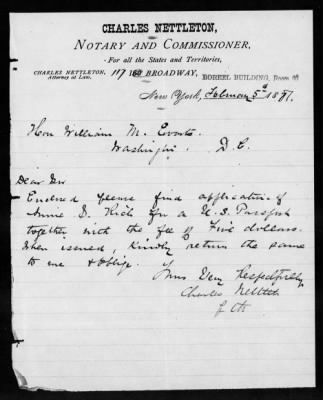 CHARLES NETTLETON,
NOTARY AND COMMISSIONER,
· For all the States and Territories,
CHARLES NETTLETON, 117 160 BROADWAY, BOREEL BUILDING, Room
Attorney at Law.
New York, February 5th 1881.
Hon William M. Evarts.
Washington. D. C.
Dear Sir
Enclosed please find application of
Annie S. Rich for a U. S. Passport
together with the fee of Five dollars.
When issued, kindly return the same
to me & oblige. Yours Very Respectfully
Charles Nettleton